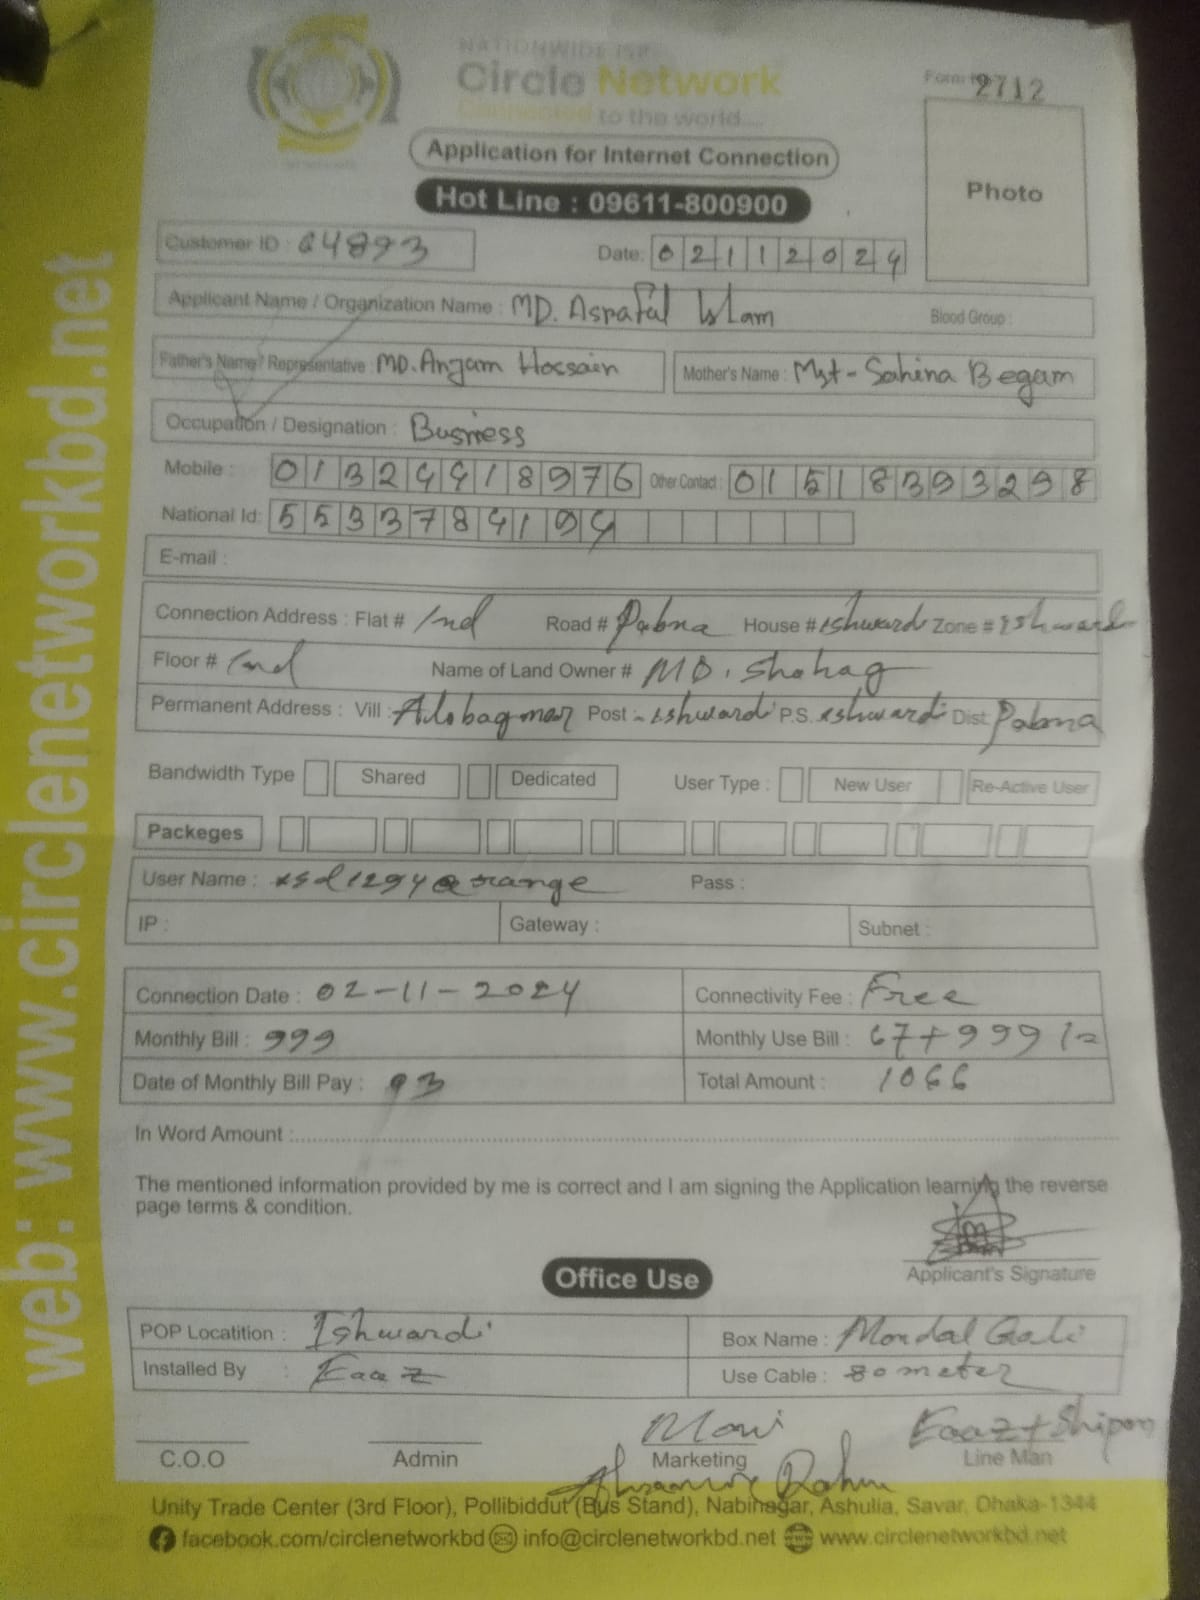 NATIONWIDE ISP
Circle Network
Connected to the world....
Form 2712
Application for Internet Connection
Hot Line : 09611-800900
Photo
Customer ID : 04893
Date: 02112024
Applicant Name / Organization Name : MD. Asraful Islam Blood Group :
Father's Name / Representative : MD. Anjam Hossain Mother's Name : Mst- Sahina Begam
Occupation / Designation : Business
Mobile : 01324418976 Other Contact : 01518393298
National Id: 5533784194
E-mail :
Connection Address : Flat # 1nd Road # Pabna House # Ishwardi Zone # Ishwardi
Floor # 1nd Name of Land Owner # MD. Shohag
Permanent Address : Vill : Post :- Ishwardi P.S. Ishwardi Dist. Pabna
Bandwidth Type Shared Dedicated User Type : New User Re-Active User
Packeges
User Name : Pass :
IP : Gateway : Subnet :
Connection Date : 02-11-2024 Connectivity Fee : Free
Monthly Bill : 999 Monthly Use Bill : 67+999/=
Date of Monthly Bill Pay : 03 Total Amount : 1066
In Word Amount :
The mentioned information provided by me is correct and I am signing the Application learning the reverse
page terms & condition.
Applicant's Signature
Office Use
POP Locatition : Ishwardi Box Name : Mondal Gali
Installed By : Eaaz Use Cable : 80 meter
Moni Eaaz + Shipon
C.O.O Admin Marketing Line Man
Unity Trade Center (3rd Floor), Pollibiddut (Bus Stand), Nabinagar, Ashulia, Savar, Dhaka-1344
facebook.com/circlenetworkbd info@circlenetworkbd.net www.circlenetworkbd.net
web: www.circlenetworkbd.net